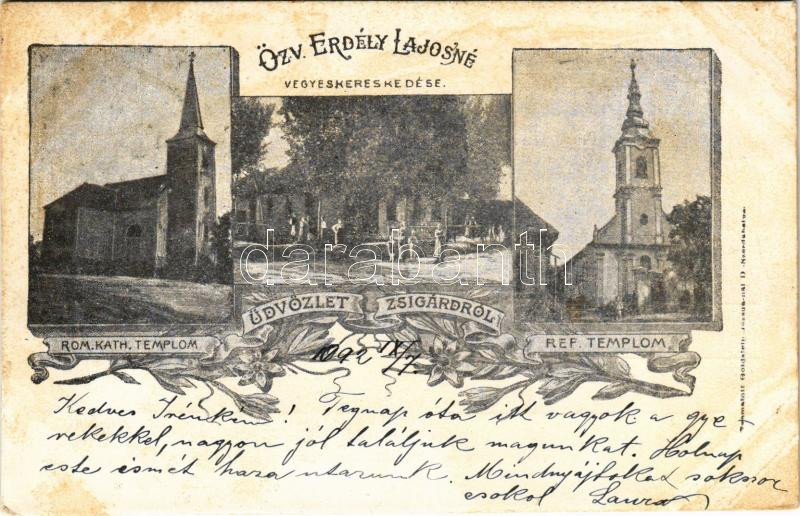 ÖZV. ERDÉLY LAJOSNÉ
VEGYESKERESKEDÉSE.
darabanth.com
ÜDVÖZLET ZSIGÁRDRÓL
ROM. KATH. TEMPLOM
REF. TEMPLOM
IX/7
Kedves Irénkém! Tegnap óta itt vagyok a gye
rekekkel, nagyon jól találjuk magunkat. Holnap
este ismét haza utazunk. Mindnyájtokat sokszor
csókol Laura